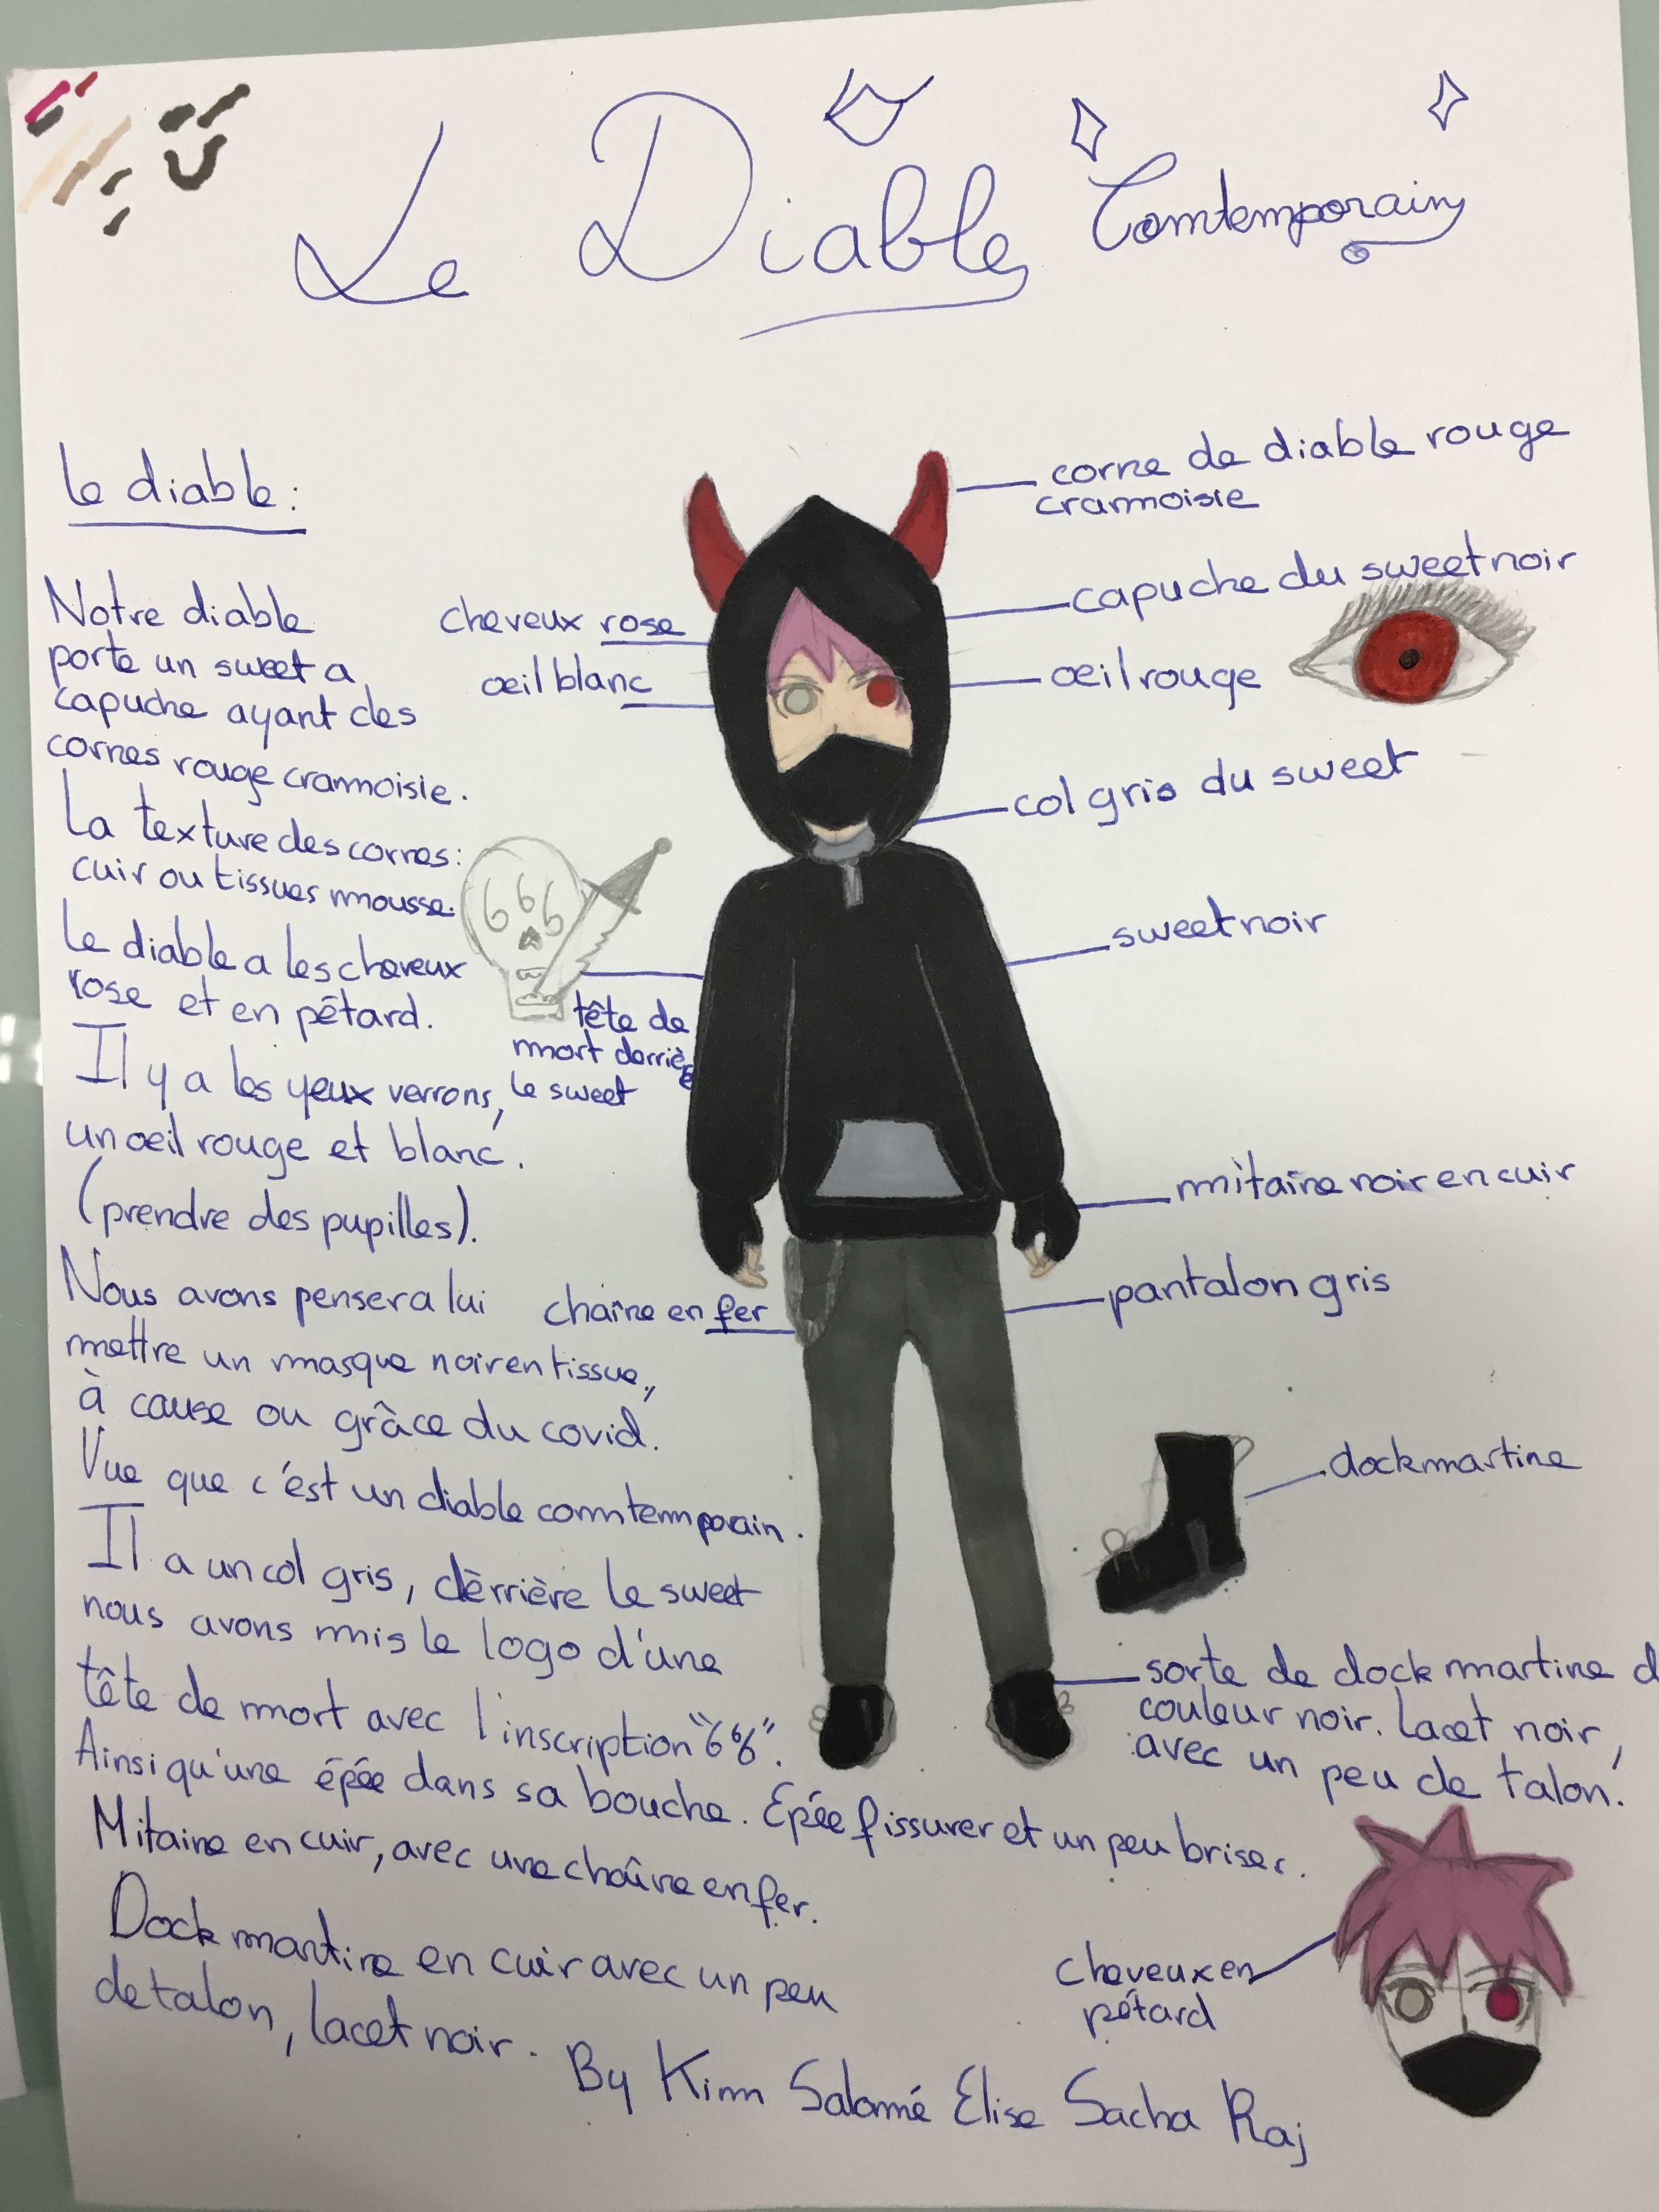 Le Diable Comtemporain
le diable:
Notre diable
porte un sweet a
capuche ayant des
cornes rouge crammoisie.
La texture des cornes:
cuir ou tissues mousse.
Le diable a les cheveux
rose et en pétard.
Il y a les yeux verrons,
un oeil rouge et blanc.
(prendre des pupilles).
Nous avons penser a lui
mettre un masque noir en tissue,
à cause ou grâce du covid.
Vue que c'est un diable comtemporain.
Il a un col gris, dèrrière le sweet
nous avons mis le logo d'une
tête de mort avec l'inscription "666".
Ainsi qu'une épée dans sa bouche. Epée fissurer et un peu briser.
Mitaine en cuir, avec une chaîne en fer.
Dock martine en cuir avec un peu
de talon, lacet noir.
By Kim Salomé Elise Sacha Raj
cheveux rose
oeil blanc
666
tête de
mort derrière
le sweet
chaîne en fer
corne de diable rouge
crammoisie
capuche du sweet noir
œil rouge
col gris du sweet
sweet noir
mitaine noir en cuir
pantalon gris
dockmartine
sorte de dock martine d
couleur noir. lacet noir,
avec un peu de talon.
cheveux en
pétard